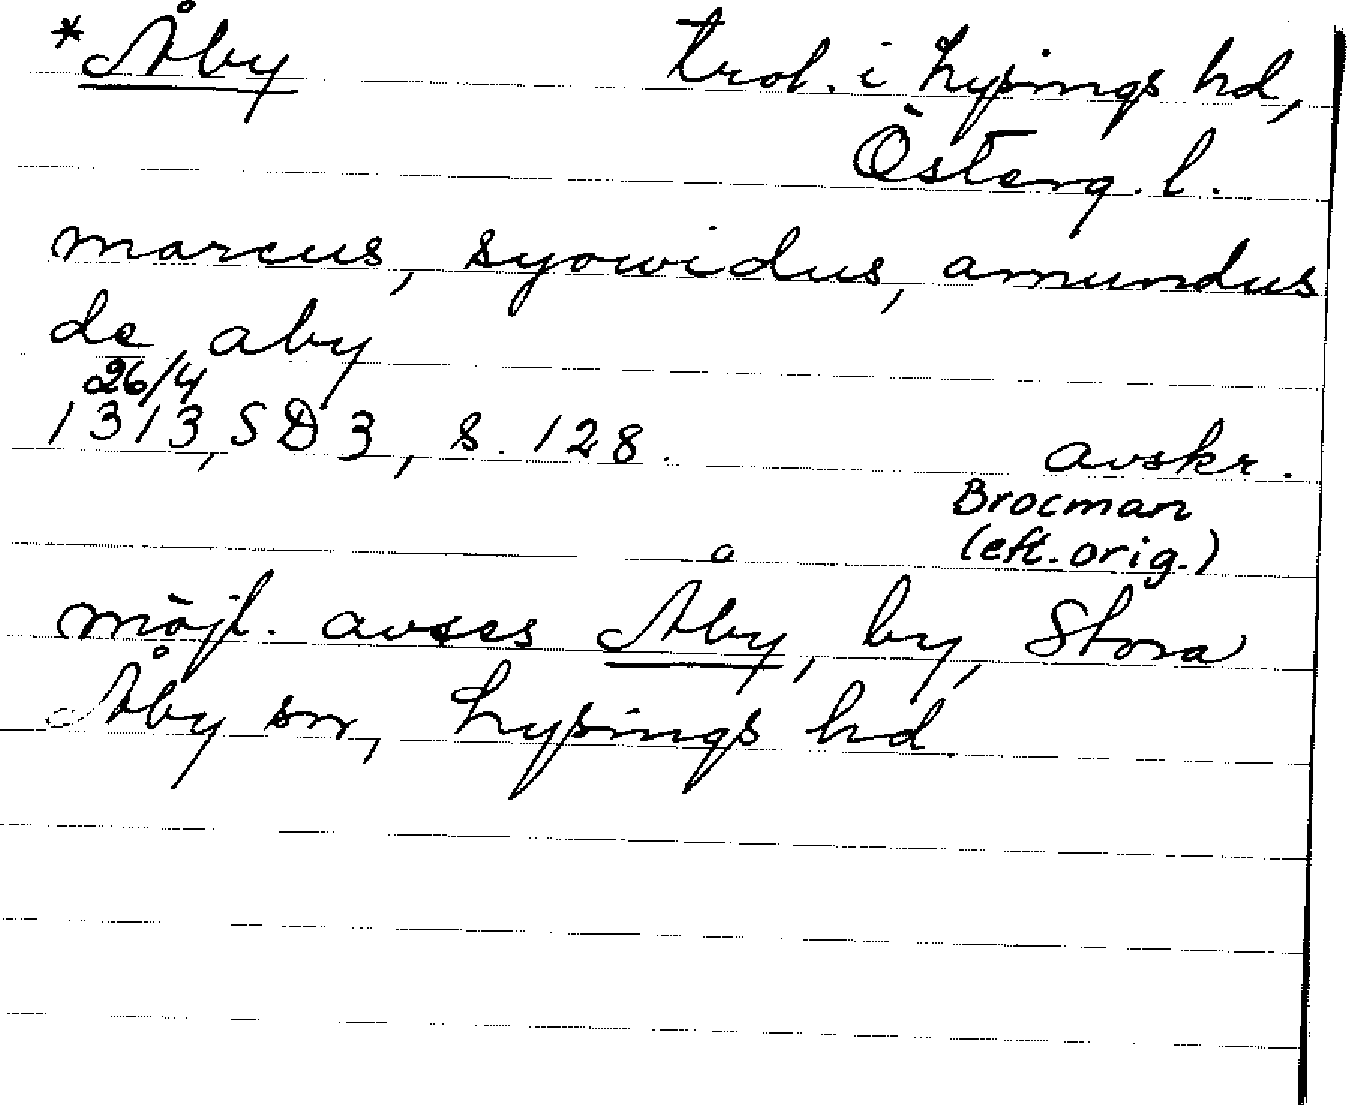 *Åby trol. i Lysings hd,
Österg. l.
marcus, syowidus, amundus
de aby
26/4
1313, SD 3, s. 128. avskr.
Brocman
(eft. orig.)
möjl. avses Åby, by, Stora
Åby sn, Lysings hd